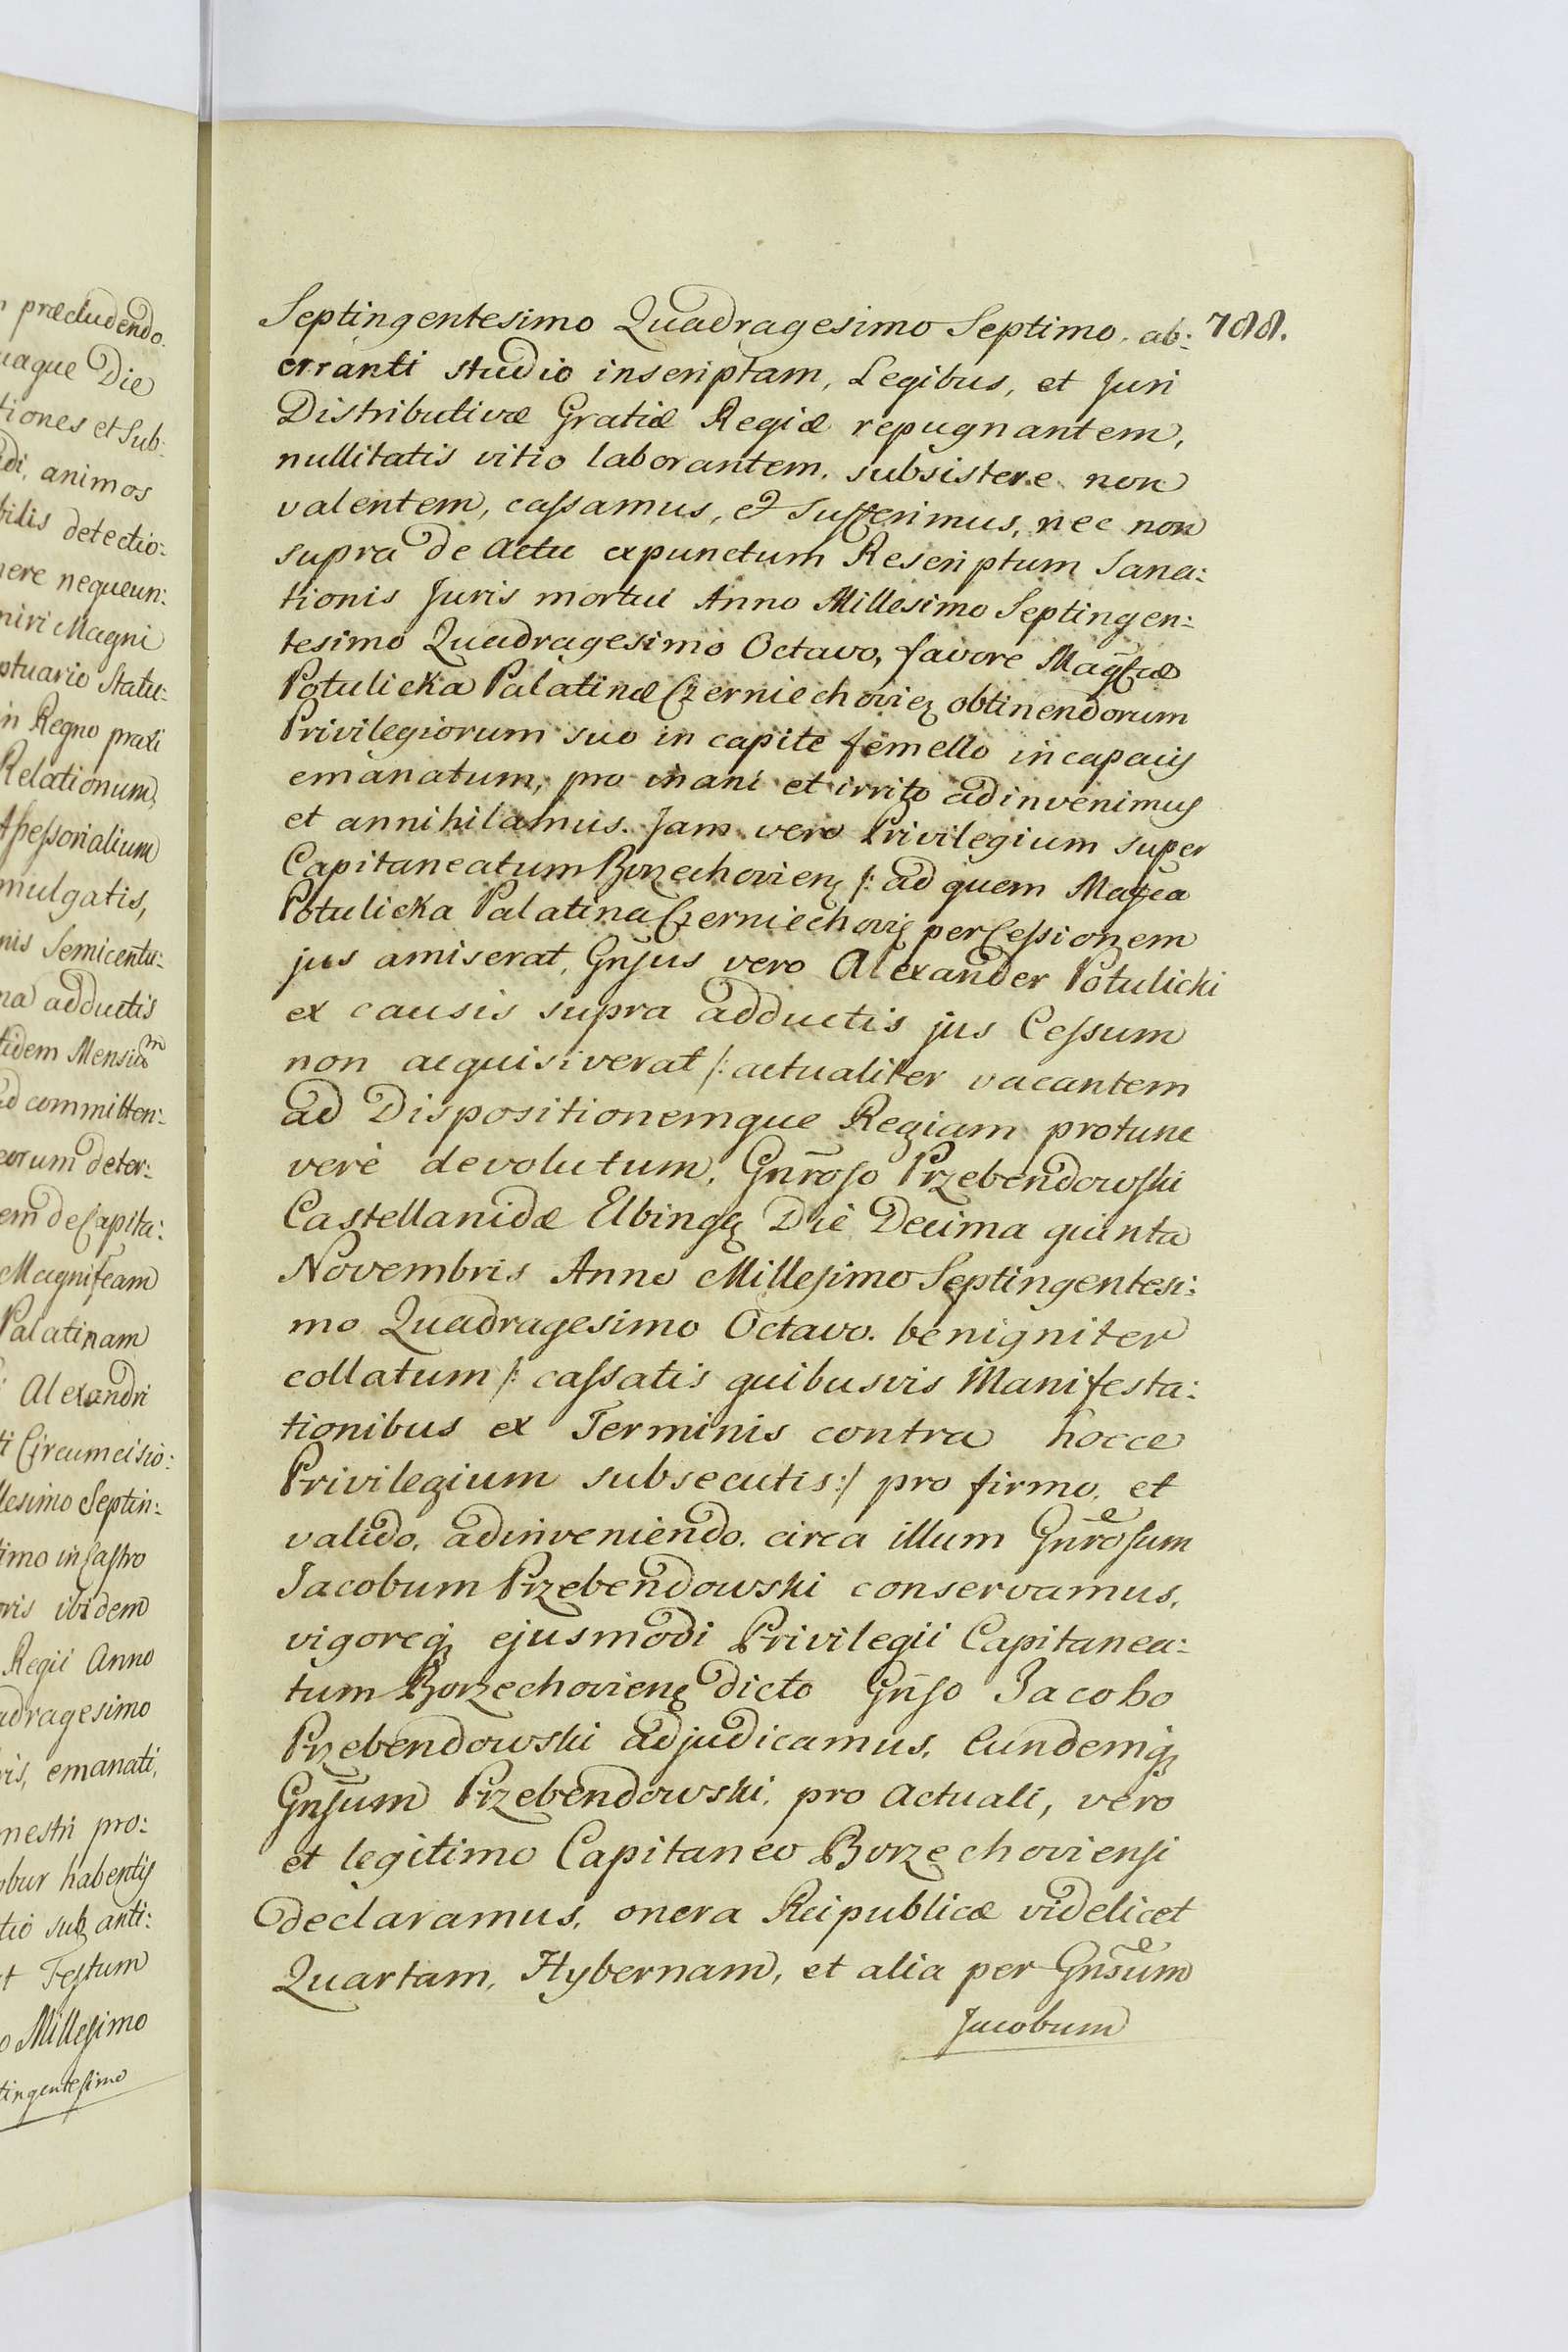 præcludendo.
uaque Die
tiones et Sub:
di, animos
bilis detectio:
nere nequeun:
niri Magni
ptuario Statu:
in Regno praxi
Relationum,
Aſseſsorialium
mulgatis,
nis Semicentu:
na adductis
tidem Mensium
ad committen:
eorum deter:
em de Capita:
Magnifcam
Palatinam
Alexandri
ti Circumcisio:
llesimo Septin:
timo in Caſtro
oris ibidem
Regii Anno
adragesimo
ris, emanati,
mestri pro:
obur habentis
tio sub anti:
t Feſtum
o Milleſimo
tingenteſimo
788.
Septingentesimo Quadragesimo Septimo, ab:
erranti studio inscriptam, Legibus, et Juri
Distributivæ Gratiæ Regiæ repugnantem,
nullitatis vitio laborantem, subsistere non
valentem, caſsamus, et Sufferimus, nec non
supra de Actu expunctum Rescriptum Sana:
tionis Juris mortui Anno Millesimo Septingen:
tesimo Quadragesimo Octavo, favore Magfcæ
Potulicka Palatinæ Czerniechovieȝ obtinendorum
Privilegiorum suo in capite femello incapacis
emanatum, pro inani et irrito adinvenimus
et annihilamus. Jam vero Privilegium super
Capitaneatum Borzechovienȝ /: ad quem Magfca
Potulicka Palatina Czerniechoviȝ per Ceſsionem
jus amiserat, Gnſus vero Alexander Potulicki
ex causis supra adductis jus Ceſsum
non acquisiverat /: actualiter vacantem
ad Dispositionemque Regiam protunc
verè devolutum, Gnr̃oſo Przebendowſki
Castellanidæ Elbingȝ Die Decima quinta
Novembris Anno Milleſimo Septingentesi:
mo Quadragesimo Octavo. benigniter
collatum /: caſsatis quibusvis Manifesta:
tionibus ex Terminis contra hocce
Privilegium subsecutis :/ pro firmo, et
valido, adinveniendo, circa illum Gnr̃oſum
Jacobum Przebendowski conservamus,
vigoreqȝ ejusmodi Privilegii Capitanea:
tum Borzechovienȝ dicto Gñſo Jacobo
Przebendowski adjudicamus, Eundemqȝ
Gnſum Przebendowski, pro Actuali, vero
et legitimo Capitaneo Borzechovienſi
declaramus, onera Reipublicæ videlicet
Quartam, Hybernam, et alia per Gnsum
Jacobum